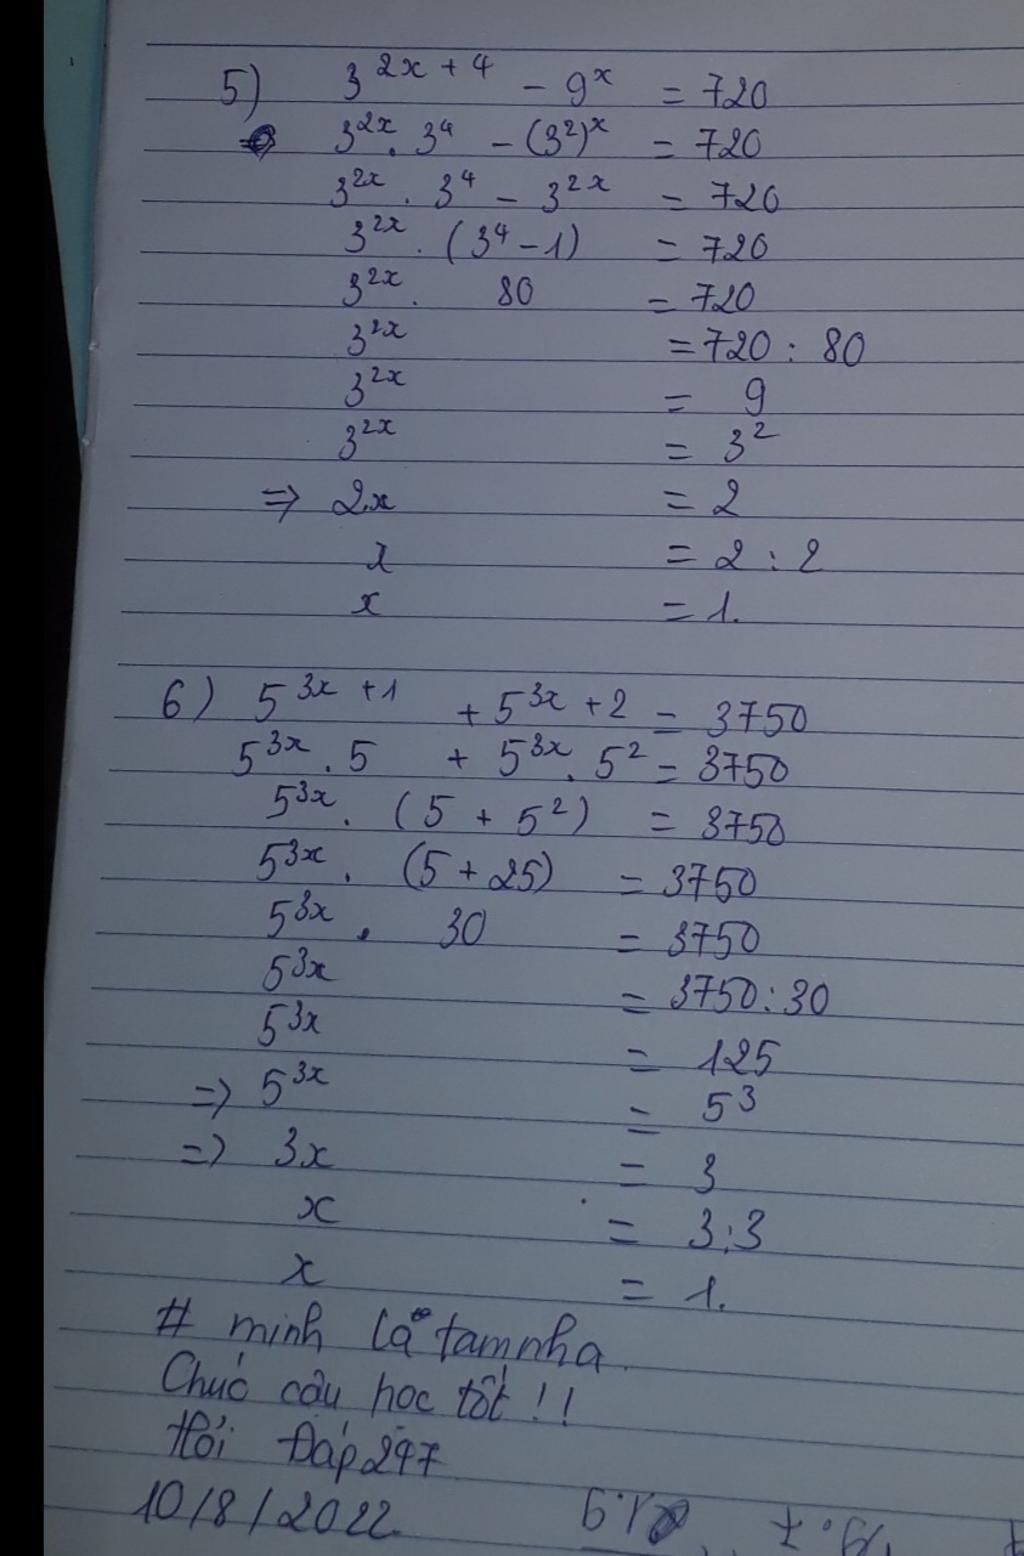 5) 3^{2x+4} - 9^x = 720
3^{2x} . 3^4 - (3^2)^x = 720
3^{2x} . 3^4 - 3^{2x} = 720
3^{2x} . (3^4 - 1) = 720
3^{2x} . 80 = 720
3^{2x} = 720 : 80
3^{2x} = 9
3^{2x} = 3^2
=> 2x = 2
x = 2 : 2
x = 1.
6) 5^{3x+1} + 5^{3x+2} = 3750
5^{3x} . 5 + 5^{3x} . 5^2 = 3750
5^{3x} . (5 + 5^2) = 3750
5^{3x} . (5 + 25) = 3750
5^{3x} . 30 = 3750
5^{3x} = 3750 : 30
5^{3x} = 125
=> 5^{3x} = 5^3
=> 3x = 3
x = 3 : 3
x = 1.
# minh
Chúc cậu học tốt !!
Hỏi Đáp 247
10/8/2022